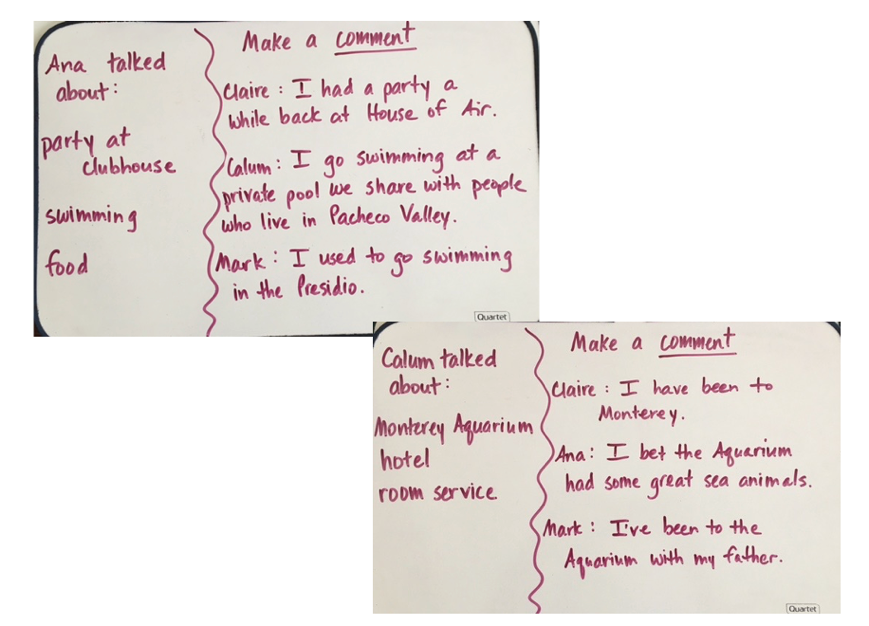 Ana talked
about:
party at
clubhouse
swimming
food
Make a comment
Claire: I had a party a
while back at House of Air.
Calum: I go swimming at a
private pool we share with people
who live in Pacheco Valley.
Mark: I used to go swimming
in the Presidio.
Quartet
Calum talked
about:
Monterey Aquarium
hotel
room service
Make a comment
Claire: I have been to
Monterey.
Ana: I bet the Aquarium
had some great sea animals.
Mark: I've been to the
Aquarium with my father.
Quartet